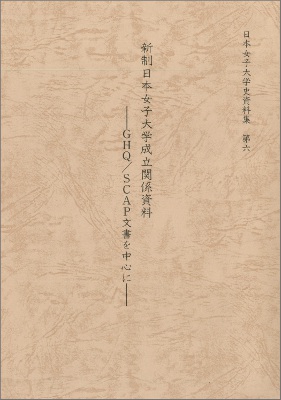 日本女子大学史資料集 第六
新制日本女子大学成立関係資料
――GHQ／SCAP文書を中心に――